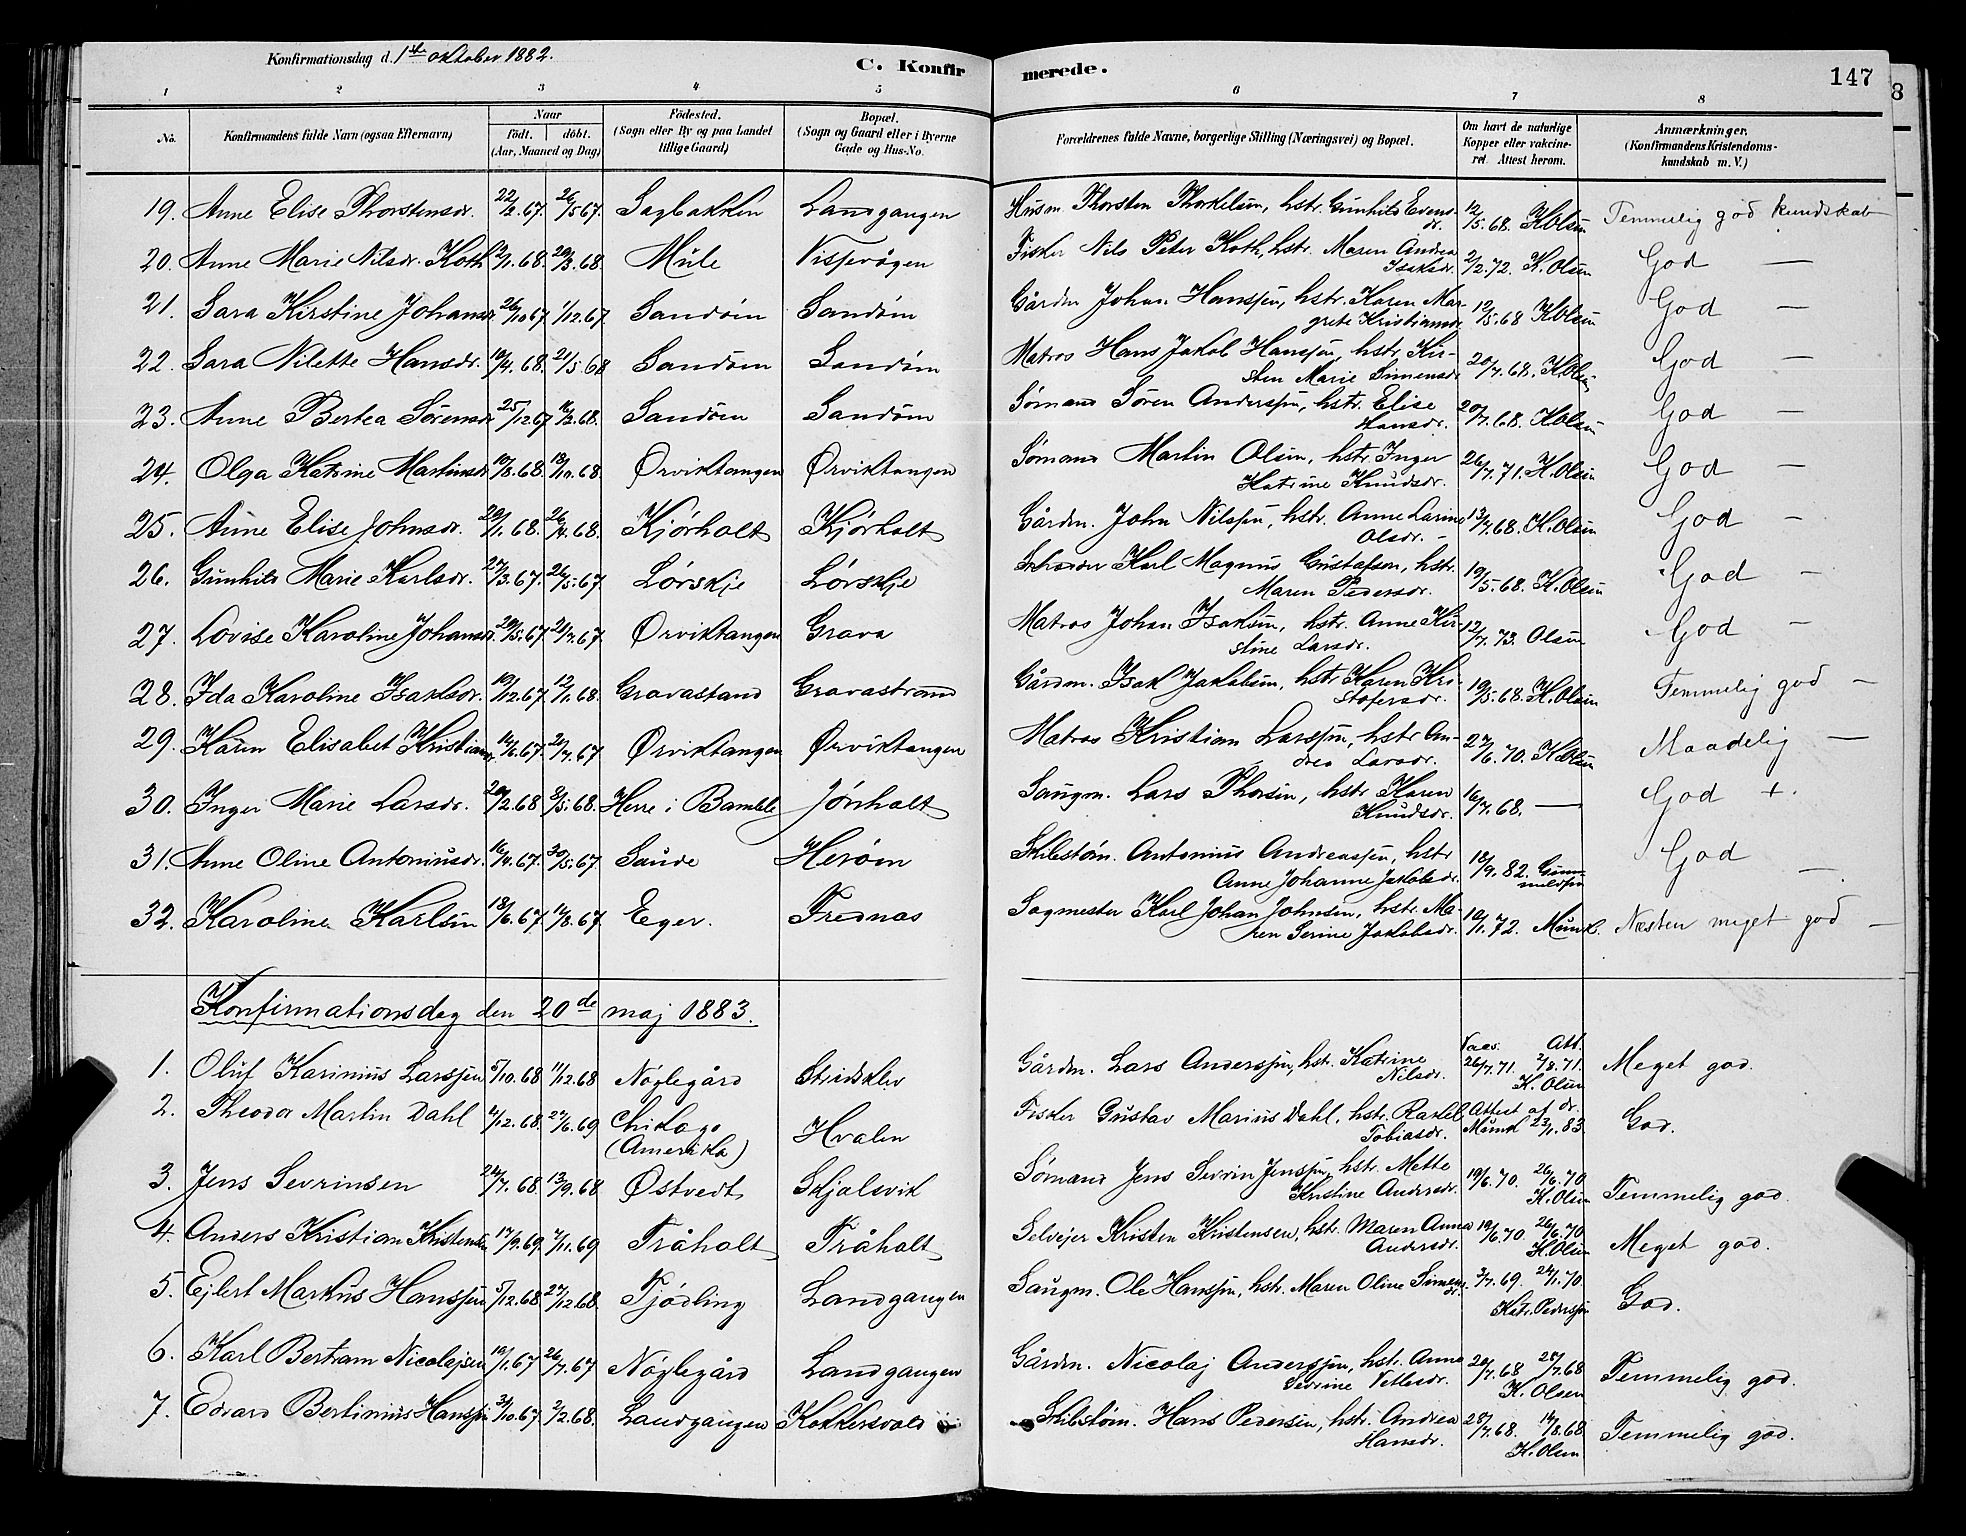 Konfirmationsdag d. 1ste oktober 1882.
C. Konfirmerede.
147
8
1 2 3 4 5 6 7 8
No. Konfirmandens fulde Navn (ogsaa Efternavn) Naar født. døbt. (Aar, Maaned og Dag) Fødested. (Sogn eller By og paa Landet tillige Gaard) Bopæl. (Sogn og Gaard eller i Byerne Gade og Hus-No. Forældrenes fulde Navne, borgerlige Stilling (Næringsvei) og Bopæl. Om havt de naturlige Kopper eller vakcineret. Attest herom. Anmærkninger. (Konfirmandens Kristendomskundskab m. V.)
19. Anne Elise Thorstensdr. 22/3.67. 26/5 67. Sagbakken Landgangen Husm. Thorsten Thorkelsen, hstr. Gunhild Evensdr. 12/5.68. K Olsen Temmelig god kundskab
20. Anne Marie Nilsdr. Koth 2/1.68. 29/3.68. Mule Vissevågen Fisker Nils Peter Koth, hstr. Maren Andrea Isaksdr. 2/2.72. K. Olsen God —
21. Sara Kirstine Johansdr. 26/10 67 1/12.67 Sandøen Sandøen Gårdm Johan Hanssen, hstr. Karen Margrete Kristiansdr 12/5.68 K Olsen God —
22. Sara Nilette Hansdr. 10/4.68. 21/5 68 Sandøen Sandøen Matros Hans Jakob Hanssen, hstr. Kirsten Marie Simensdr 20/7.68. K. Olsen God —
23. Anne Bertea Sørensdr 25/12.67 16/2.68. Sandøen Sandøen Sømand Søren Anderssen, hstr. Elise Hansdr. 20/7.68. K Olsen God —
24. Olga Katrine Martinsdr 10/8.68. 18/10.68. Ørviktangen Ørviktangen Sømand Martin Olsen, hstr. Inger Katrine Knudsdr. 26/7.71. K. Olsen God —
25. Anne Elise Johnsdr. 29/1.68. 26/4.68. Kjørholt Kjørholt Gårdm. John Nilssen, hstr. Anne Larine Olsdr. — 13/7.68. K. Olsen God —
26. Gunhild Marie Karlsdr. 27/3.67. 26/5.67 Lørskje Lørskje Karl Magnus Gustafsen, hstr. Maren Pedersdr. 19/5.68. K. Olsen God —
27. Lovise Karoline Johansdr. 29/5.67. 21/7.67. Ørviktangen Grava Matros Johan Isaksen, hstr. Anne Kirstine Larsdr. 12/7.73. Olsen God —
28. Ida Karoline Isaksdr. 19/12.67. 12/1.68. Gravastand Gravastrand Gårdm. Isak Jakobsen, hstr Karen Kristofersdr. 19/5.68. K. Olsen Temmelig god —
29. Karen Elisabet Kristiansdr 14/6.67. 21/7.67 Ørviktangen Ørviktangen Matros Kristian Larssen, hstr Andrea Larsdr. 27/6.70. K Olsen Maadelig —
30. Inger Marie Larsdr. 20/2.68 3/5.68. Herre i Bamble Jønholt Saugm. Lars Thorsen, hstr Karen Knudsdr. 16/7.68. — God +.
31. Anne Oline Antoniusdr. 16/4.67. 30/5.67 Saude Herøen Skibstøm. Antonius Andreassen, hstr Anne Johanne Jakobsdr. 18/9.82. Gunmuldsen God —
32. Karoline Karlsen 18/6.67. 11/8.67 Eger. Frednæs Sagmester Karl Johan Johnsen, hstr. Maren Serine Jakobsdr. 10/1.72. Munk. Næsten meget god —
Konfirmationsdag den 20de maj 1883.
Vacc. Att.
1. Oluf Karinius Larssen 5/10.68 11/12.68 Nøglegård Stridsklev Gårdm. Lars Anderssen, hstr. Katrine Nilsdr. 26/7.71. 2/8.71. K. Olsen Meget god.
2. Theodor Martin Dahl 4/12.68. 27/6.69 Chikago (Amerika) Hvalen Fisker Gustav Marius Dahl, hstr. Rakel Tobiasdr. Attest af dr. Munk 23/1.83. God.
3. Jens Sevrinsen 24/7.68. 13/9.68 Østvedt Skjelsvik Sømand Jens Sevrin Jenssen, hstr. Mette Kristine Andersdr. 19/6.70. 26/6.70 K. Olsen Temmelig god.
4. Anders Kristian Kristensen 17/9.69. 7/11.69 Tråholt Tråholt Selvejer Kristen Kristensen, hstr. Maren Anna Andersdr. 19/6.70. 26/6.70 K. Olsen Meget god.
5. Ejlert Markus Hanssen 5/12.68 27/12.68. Fjødling Landgangen Saugm. Ole Hanssen, hstr. Maren Oline Simensdr. 3/7.69. 24/1.70. Katr. Pedersen God.
6. Karl Bertram Nicolajsen 19/1.67 26/7.67 Nøglegård Landgangen Gårdm. Nicolaj Anderssen, hstr. Anna Sevrine Vetlesdr. 20/7.68 28/7.68 K. Olsen Temmelig god.
7. Edvard Bertinius Hanssen 31/10.67 2/2.68. Landgangen Kokkersvold Skibstøm. Hans Pedersen, hstr. Andrea Hansdr. 28/7.68. 14/8.68 K. Olsen Temmelig god.